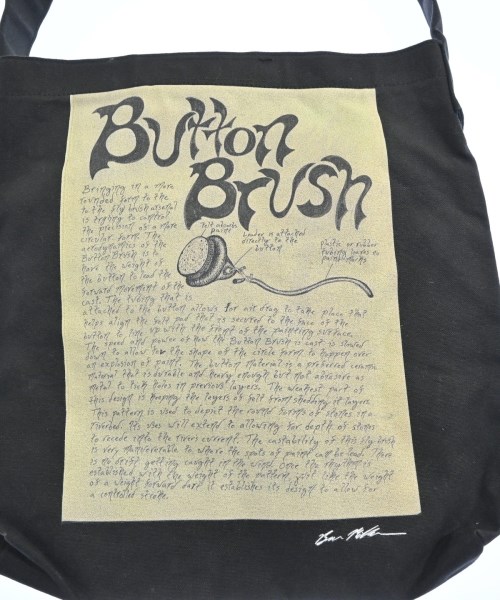 Button
Brush
Bringing in a more
rounded form to the
to the fly brush arsenal
is trying to control
the precision of a more
circular form. The
aerodynamics of the
Button Brush is to
have the weight of
the button to lead the
forward movement of the
cast. The tubing that is
felt absorbs
paint
Leader is attached
directly to the
button
plastic or rubber
tubing
attached to the button allows for air drag to take place that
helps align the felt pad that is secured to the face of the
button to line up with the front of the painting surface.
The speed and power of how the Button Brush is cast is slowed
down to allow for the shape of the circle form to happen over
an explosion of paint. The button material is a preferred ceramic
material that is durable and heavy enough but not abrasive as
metal to kick holes in previous layers. The weakest part of
this design is keeping the layers of felt from shedding its layers.
This pattern is used to depict the round forms of stones in a
riverbed. Its uses will extend to allowing for depth of stones
to recede into the rivers current. The castability of this fly brush
is very maneuverable to where the spots of paint can be lead. There
is no drift getting caught in the wind. Once the rhythm is
established with the weight of the pattern, just like the weight
of a weight forward dart it establishes its design to allow for
a controlled stroke.